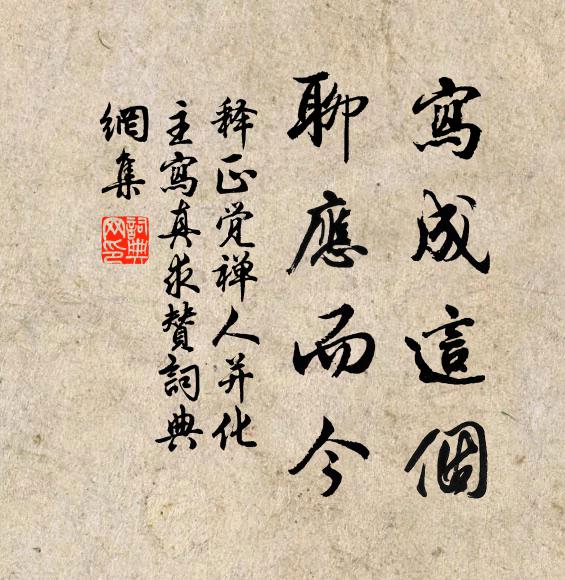 寫成這個
聊應而今
释正觉禅人并化
主寫真求赞詞典
網集
詞典网印